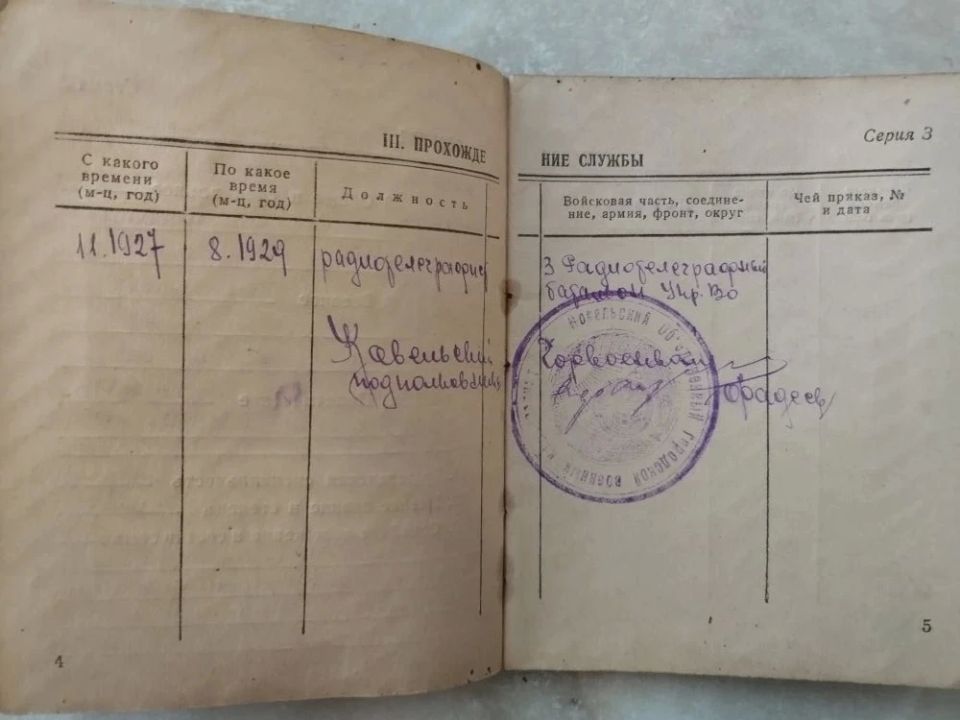 Серия З
III. ПРОХОЖДЕ
НИЕ СЛУЖБЫ
С какого
времени
(м-ц, год)
По какое
время
(м-ц, год)
Должность
Войсковая часть, соедине-
ние, армия, фронт, округ
Чей приказ, №
и дата
11.1927
8.1929
радиотелеграфист
3 Радиотелеграфный
батальон Укр.Во
Ковельский
Горвоенком
подполковник
Фадеев
КОВЕЛЬСКИЙ ОБЪЕДИНЕННЫЙ ГОРОДСКОЙ ВОЕННЫЙ
4
5